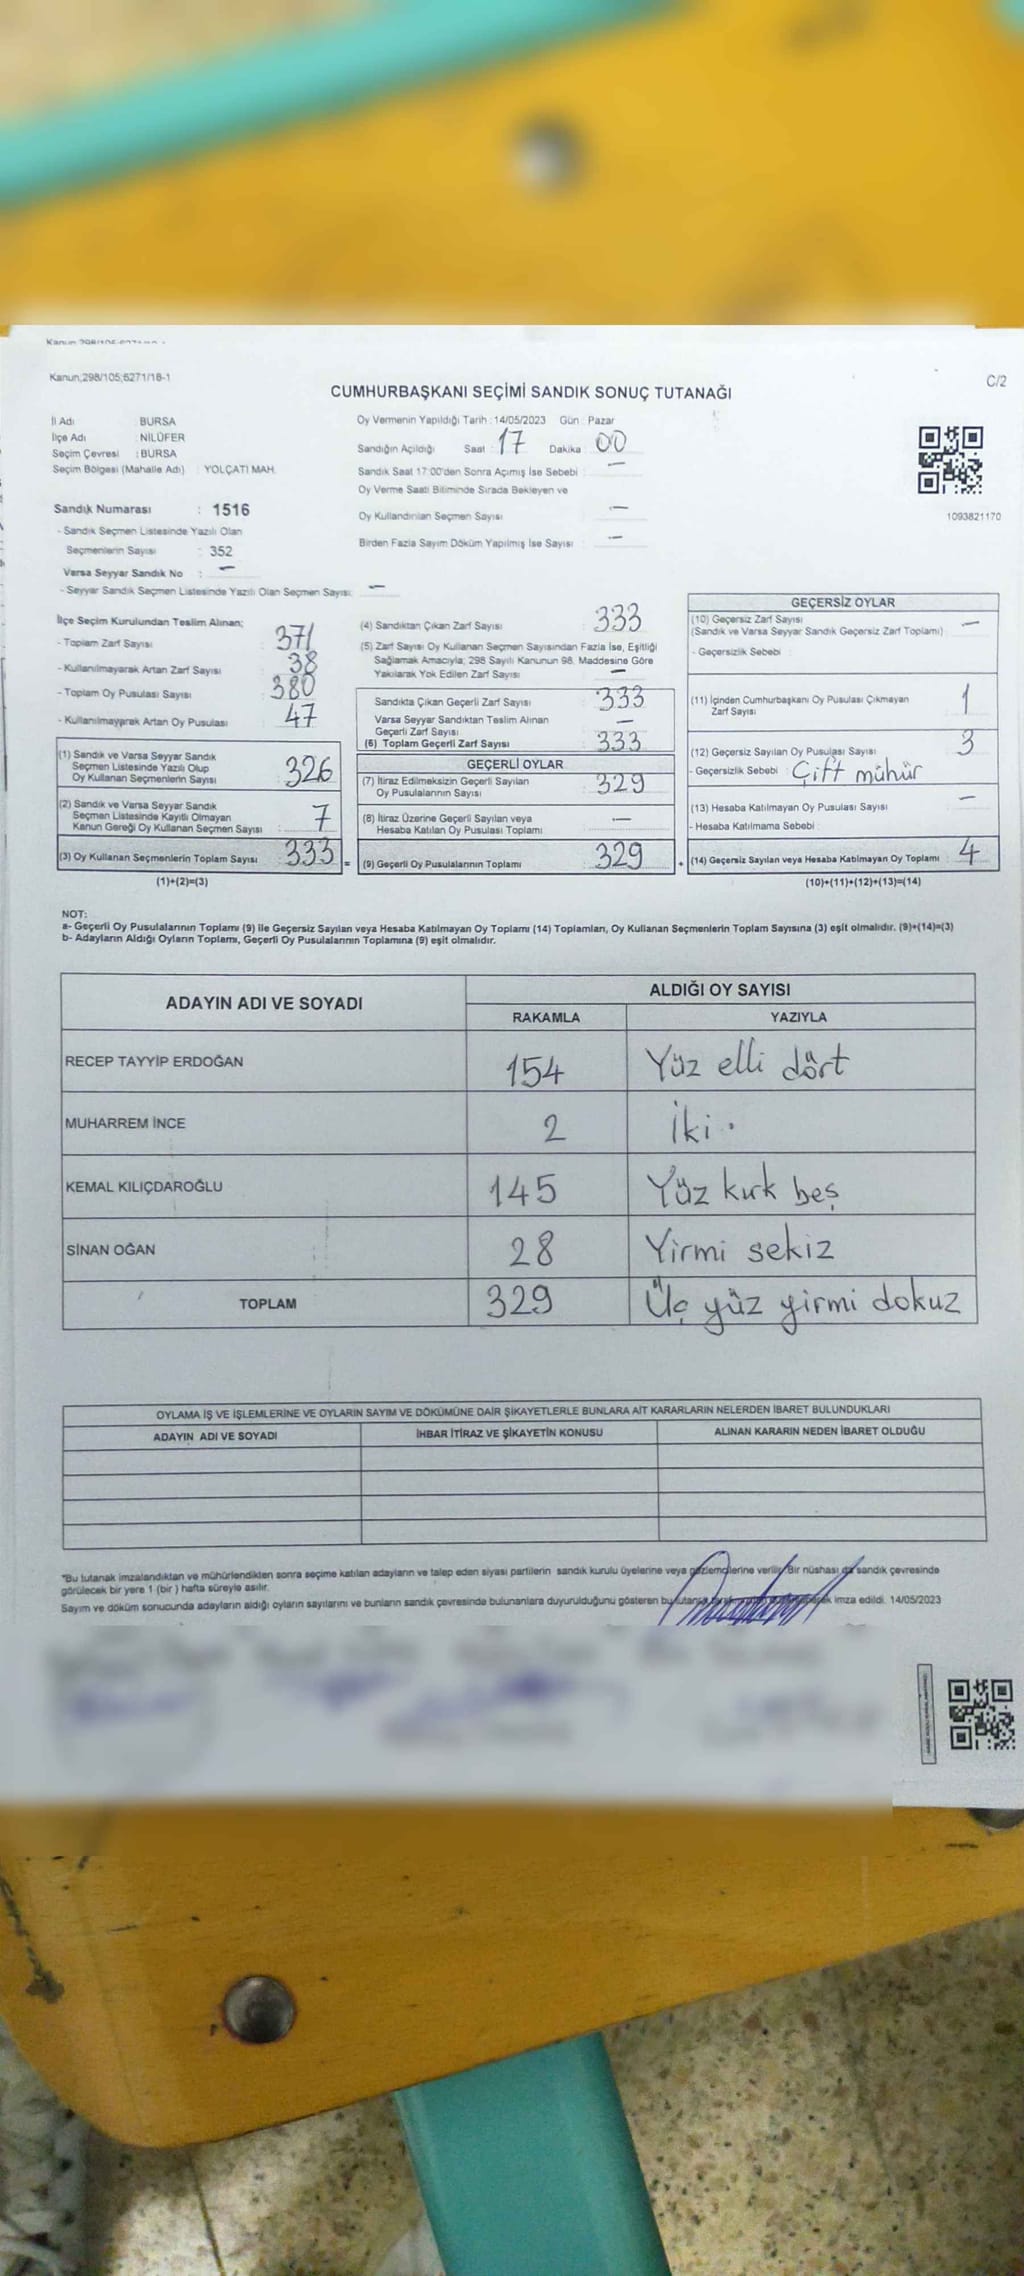 Kanun;298/105;6271/18-1
C/2
CUMHURBAŞKANI SEÇİMİ SANDIK SONUÇ TUTANAĞI
İl Adı : BURSA
İlçe Adı : NİLÜFER
Seçim Çevresi : BURSA
Seçim Bölgesi (Mahalle Adı) : YOLÇATI MAH.
Oy Vermenin Yapıldığı Tarih : 14/05/2023 Gün : Pazar
Sandığın Açıldığı Saat : 17 Dakika 00
Sandık Saat 17:00'den Sonra Açımış İse Sebebi : —
Oy Verme Saati Bitiminde Sırada Bekleyen ve
Oy Kullandırılan Seçmen Sayısı : —
Birden Fazla Sayım Döküm Yapılmış İse Sayısı : —
1093821170
Sandık Numarası : 1516
- Sandık Seçmen Listesinde Yazılı Olan
Seçmenlerin Sayısı : 352
Varsa Seyyar Sandık No : —
- Seyyar Sandık Seçmen Listesinde Yazılı Olan Seçmen Sayısı: —
İlçe Seçim Kurulundan Teslim Alınan;
- Toplam Zarf Sayısı : 371
- Kullanılmayarak Artan Zarf Sayısı : 38
- Toplam Oy Pusulası Sayısı : 380
- Kullanılmayarak Artan Oy Pusulası : 47
(1) Sandık ve Varsa Seyyar Sandık
Seçmen Listesinde Yazılı Olup
Oy Kullanan Seçmenlerin Sayısı : 326
(2) Sandık ve Varsa Seyyar Sandık
Seçmen Listesinde Kayıtlı Olmayan
Kanun Gereği Oy Kullanan Seçmen Sayısı : 7
(3) Oy Kullanan Seçmenlerin Toplam Sayısı : 333 =
(1)+(2)=(3)
(4) Sandıktan Çıkan Zarf Sayısı : 333
(5) Zarf Sayısı Oy Kullanan Seçmen Sayısından Fazla İse, Eşitliği
Sağlamak Amacıyla; 298 Sayılı Kanunun 98. Maddesine Göre
Yakılarak Yok Edilen Zarf Sayısı : —
Sandıkta Çıkan Geçerli Zarf Sayısı : 333
Varsa Seyyar Sandıktan Teslim Alınan
Geçerli Zarf Sayısı : —
(6) Toplam Geçerli Zarf Sayısı : 333
GEÇERLİ OYLAR
(7) İtiraz Edilmeksizin Geçerli Sayılan
Oy Pusulalarının Sayısı : 329
(8) İtiraz Üzerine Geçerli Sayılan veya
Hesaba Katılan Oy Pusulası Toplamı : —
(9) Geçerli Oy Pusulalarının Toplamı : 329 +
GEÇERSİZ OYLAR
(10) Geçersiz Zarf Sayısı : —
(Sandık ve Varsa Seyyar Sandık Geçersiz Zarf Toplamı)
- Geçersizlik Sebebi :
(11) İçinden Cumhurbaşkanı Oy Pusulası Çıkmayan
Zarf Sayısı : 1
(12) Geçersiz Sayılan Oy Pusulası Sayısı : 3
- Geçersizlik Sebebi : Çift mühür
(13) Hesaba Katılmayan Oy Pusulası Sayısı : —
- Hesaba Katılmama Sebebi :
(14) Geçersiz Sayılan veya Hesaba Katılmayan Oy Toplamı : 4
(10)+(11)+(12)+(13)=(14)
NOT:
a- Geçerli Oy Pusulalarının Toplamı (9) ile Geçersiz Sayılan veya Hesaba Katılmayan Oy Toplamı (14) Toplamları, Oy Kullanan Seçmenlerin Toplam Sayısına (3) eşit olmalıdır. (9)+(14)=(3)
b- Adayların Aldığı Oyların Toplamı, Geçerli Oy Pusulalarının Toplamına (9) eşit olmalıdır.
ADAYIN ADI VE SOYADI ALDIĞI OY SAYISI
RAKAMLA YAZIYLA
RECEP TAYYİP ERDOĞAN 154 Yüz elli dört
MUHARREM İNCE 2 İki .
KEMAL KILIÇDAROĞLU 145 Yüz kırk beş
SİNAN OĞAN 28 Yirmi sekiz
TOPLAM 329 Üç yüz yirmi dokuz
OYLAMA İŞ VE İŞLEMLERİNE VE OYLARIN SAYIM VE DÖKÜMÜNE DAİR ŞİKAYETLERLE BUNLARA AİT KARARLARIN NELERDEN İBARET BULUNDUKLARI
ADAYIN ADI VE SOYADI İHBAR İTİRAZ VE ŞİKAYETİN KONUSU ALINAN KARARIN NEDEN İBARET OLDUĞU
*Bu tutanak imzalandıktan ve mühürlendikten sonra seçime katılan adayların ve talep eden siyasi partilerin sandık kurulu üyelerine veya gözlemcilerine verilir. Bir nüshası da sandık çevresinde
görülecek bir yere 1 (bir ) hafta süreyle asılır.
Sayım ve döküm sonucunda adayların aldığı oyların sayılarını ve bunların sandık çevresinde bulunanlara duyurulduğunu gösteren bu imza edildi. 14/05/2023